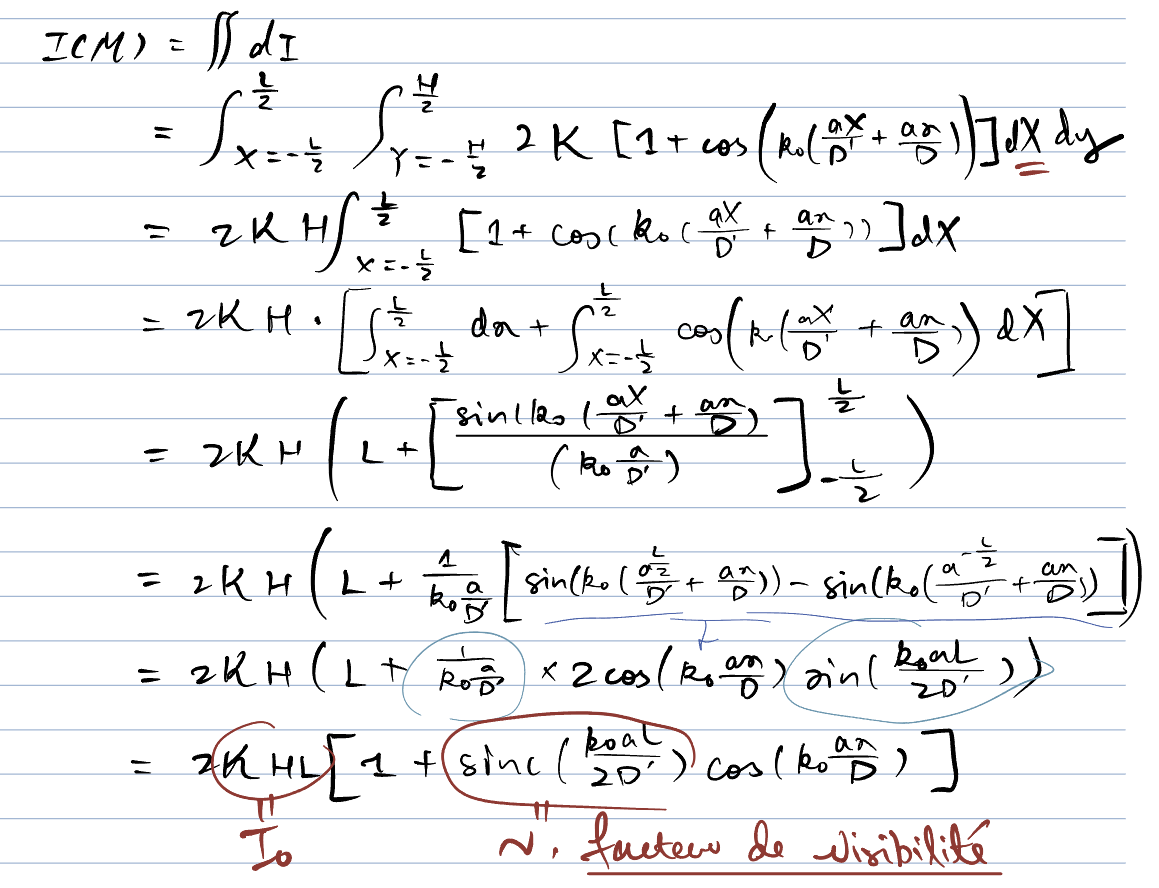 I(M) = ∬ dI
= ∫_{X=-L/2}^{L/2} ∫_{Y=-H/2}^{H/2} 2K [1 + cos(k₀(aX/D' + ax/D))] dX dy
= 2KH ∫_{X=-L/2}^{L/2} [1 + cos(k₀(aX/D' + ax/D))] dX
= 2KH · [∫_{X=-L/2}^{L/2} dx + ∫_{X=-L/2}^{L/2} cos(k(aX/D' + ax/D)) dX]
= 2KH (L + [sin(k₀(aX/D' + ax/D) / (k₀ a/D')]_{-L/2}^{L/2})
= 2KH (L + 1/(k₀ a/D') [sin(k₀(a L/2 / D' + ax/D)) - sin(k₀(a -L/2 / D' + ax/D))])
= 2KH (L + 1/(k₀ a/D') × 2cos(k₀ ax/D) sin(k₀aL/2D'))
= 2KHL [1 + sinc(k₀aL/2D') cos(k₀ ax/D)]
I₀ V. facteur de visibilité